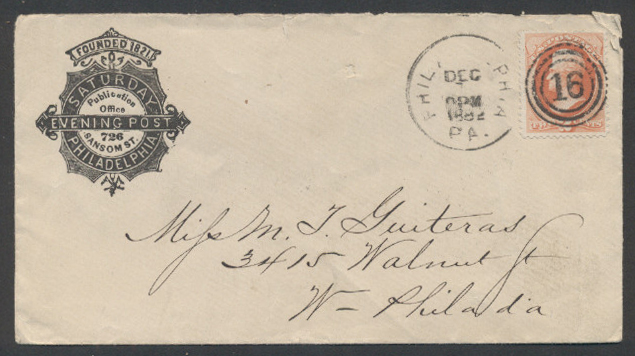 FOUNDED 1821
SATURDAY
Publication
Office
EVENING POST
726
SANSOM ST.
PHILADELPHIA
PHIL PHIA
DEC
PM
1882
PA.
16
Miss M. T. Guiteras
3415 Walnut St
W- Philada